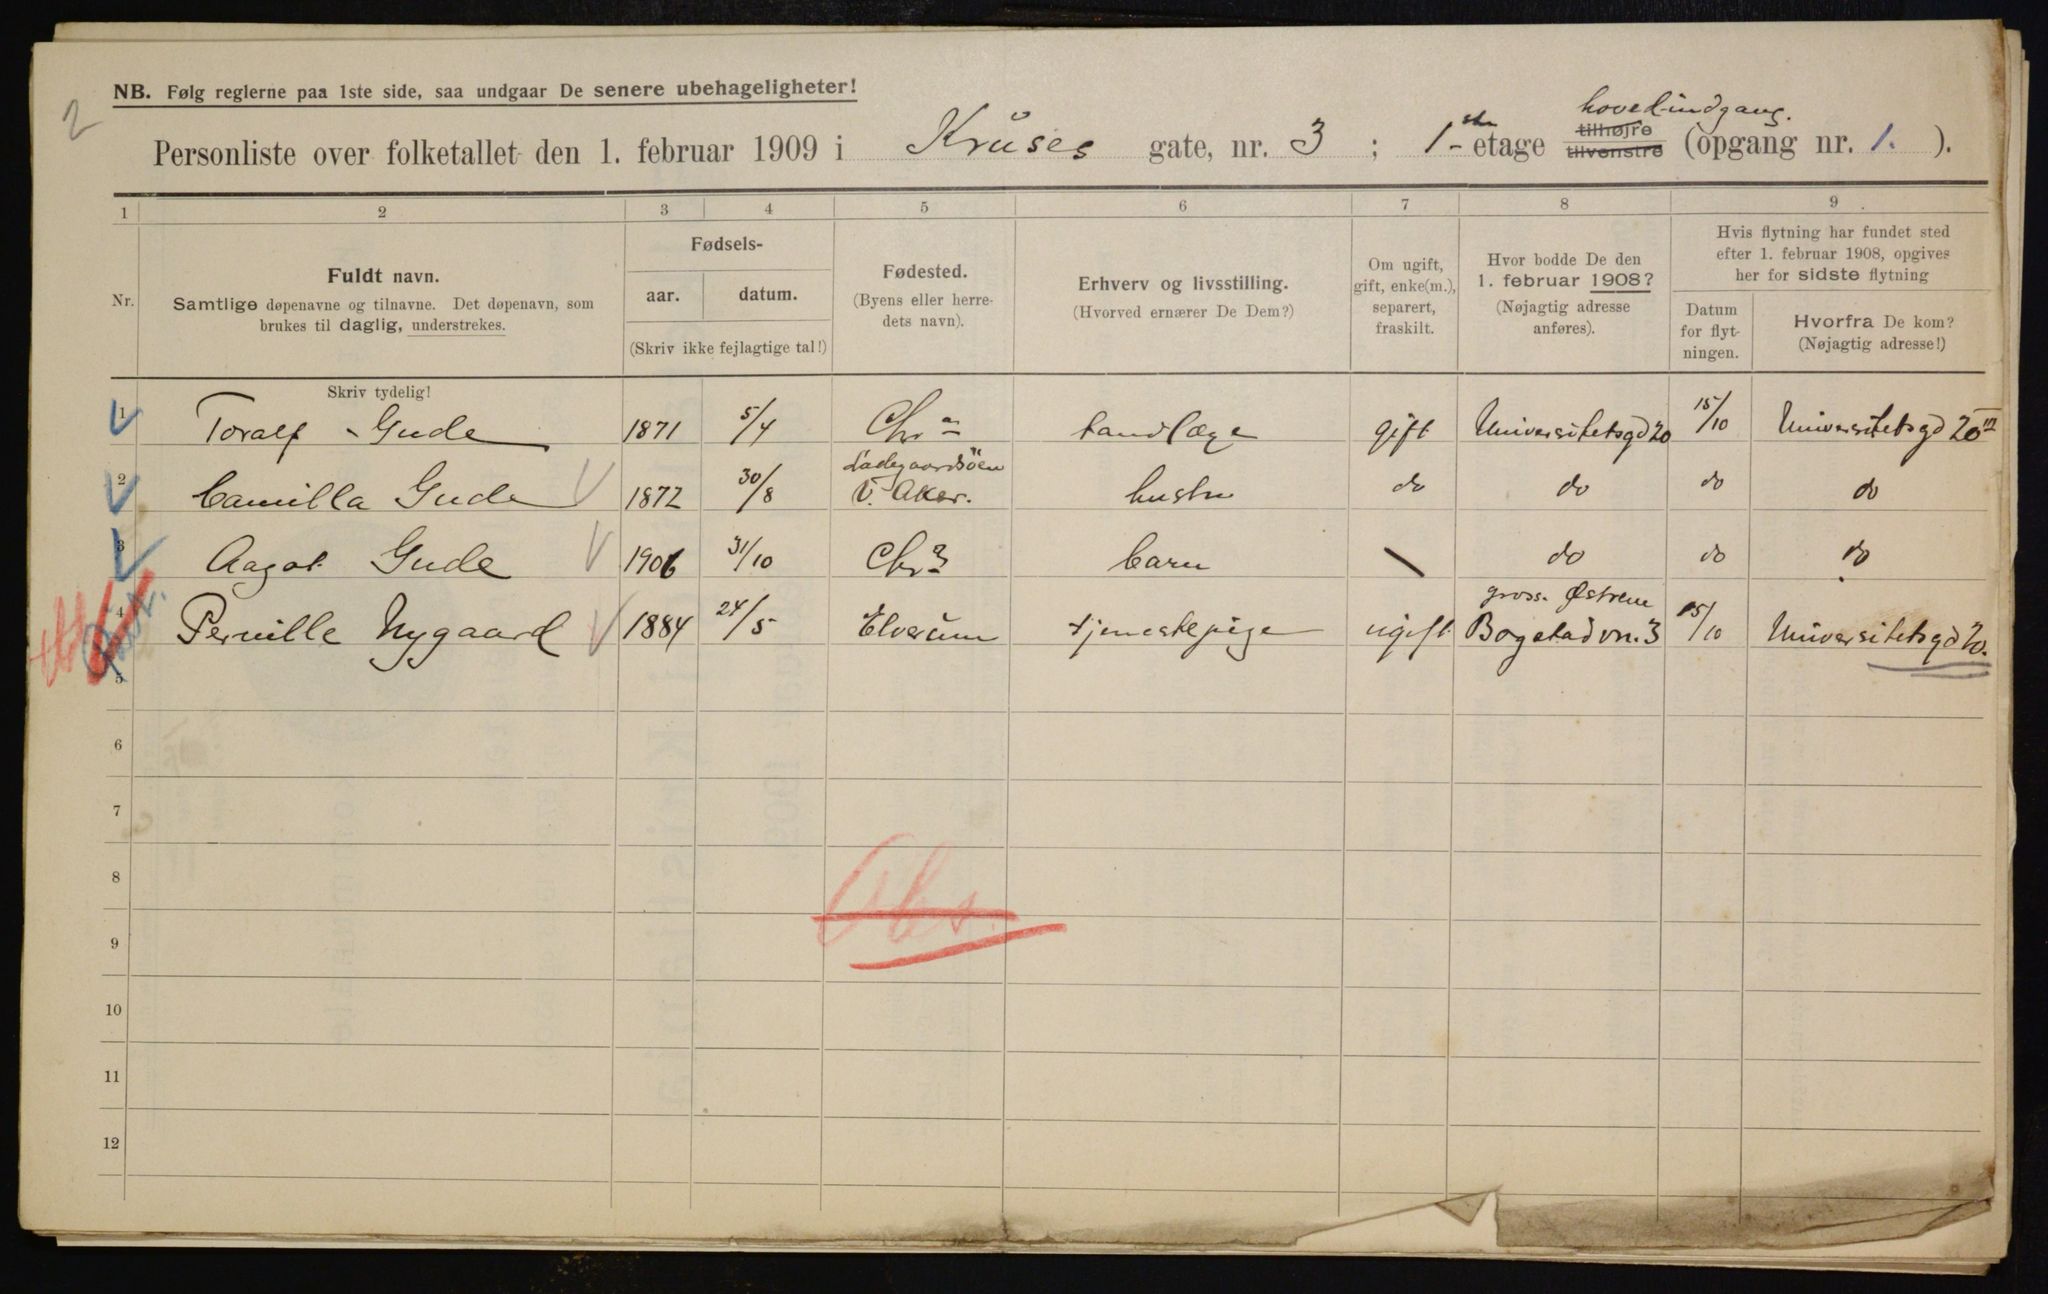 2
NB. Følg reglerne paa 1ste side, saa undgaar De senere ubehageligheter!
hovedindgang.
Personliste over folketallet den 1. februar 1909 i Kruses gate, nr. 3 ; 1ste etage tilhøjre tilvenstre (opgang nr. 1. ).
1 2 3 4 5 6 7 8 9
Nr.
Fuldt navn.
Samtlige døpenavne og tilnavne. Det døpenavn, som
brukes til daglig, understrekes.
Skriv tydelig!
Fødsels-
aar. datum.
(Skriv ikke fejlagtige tal!)
Fødested.
(Byens eller herre-
dets navn).
Erhverv og livsstilling.
(Hvorved ernærer De Dem?)
Om ugift,
gift, enke(m.),
separert,
fraskilt.
Hvor bodde De den
1. februar 1908?
(Nøjagtig adresse
anføres).
Hvis flytning har fundet sted
efter 1. februar 1908, opgives
her for sidste flytning
Datum
for flyt-
ningen.
Hvorfra De kom?
(Nøjagtig adresse!)
1 Toralf Gude 1871 5/4 Chra tandlæge gift Universitetsgd 20 15/10 Universitetsgd 20 III
Ladegaardsöen
2 Camilla Gude 1872 30/8 V. Aker. hustru do do do do
3 Aagot Gude 1906 31/10 Chra barn \ do do do
gross. Østrem
4 Pernille Nygaard 1884 24/5 Elverum tjenestepige ugift Bogstadvn. 3 15/10 Universitetsgd 20.
5
6
7
8
Obs.
9
10
11
12